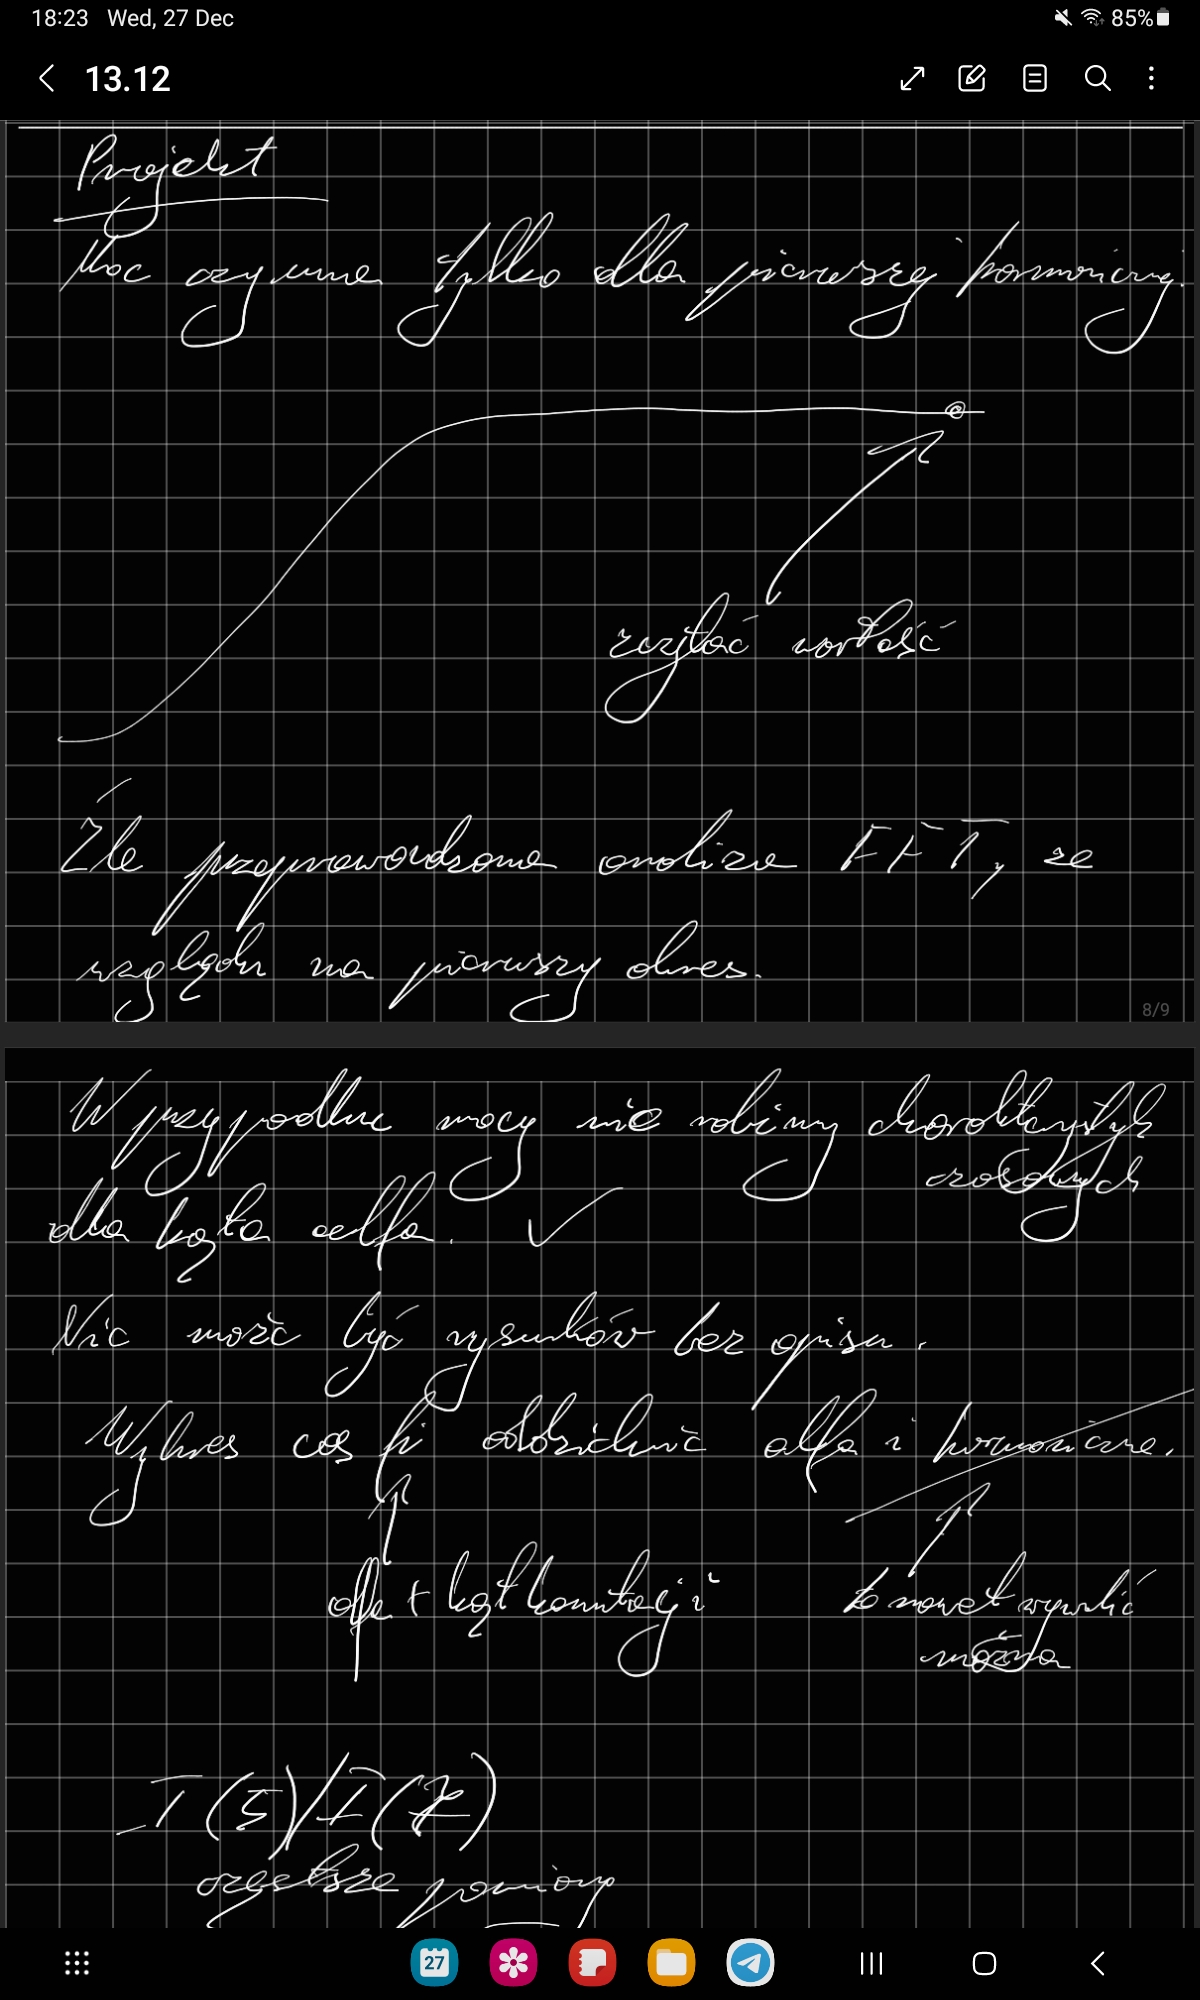 18:23 Wed, 27 Dec 85%
13.12
Projekt
Moc czynna tylko dla pierwszej harmonicznej.
sczytać wartość
Źle przeprowadzona analiza FFT, ze
względu na pierwszy okres.
8/9
W przypadku mocy nie robimy charakterystyk
czasowych
dla kąta alfa. ✓
Nie może być rysunków bez opisu.
Wykres cos fi oddzielnie alfa i harmoniczne.
alfa + kąt komutacji
to nawet wywalić
można
I(5)/I(7)
częstsze pomiary
27